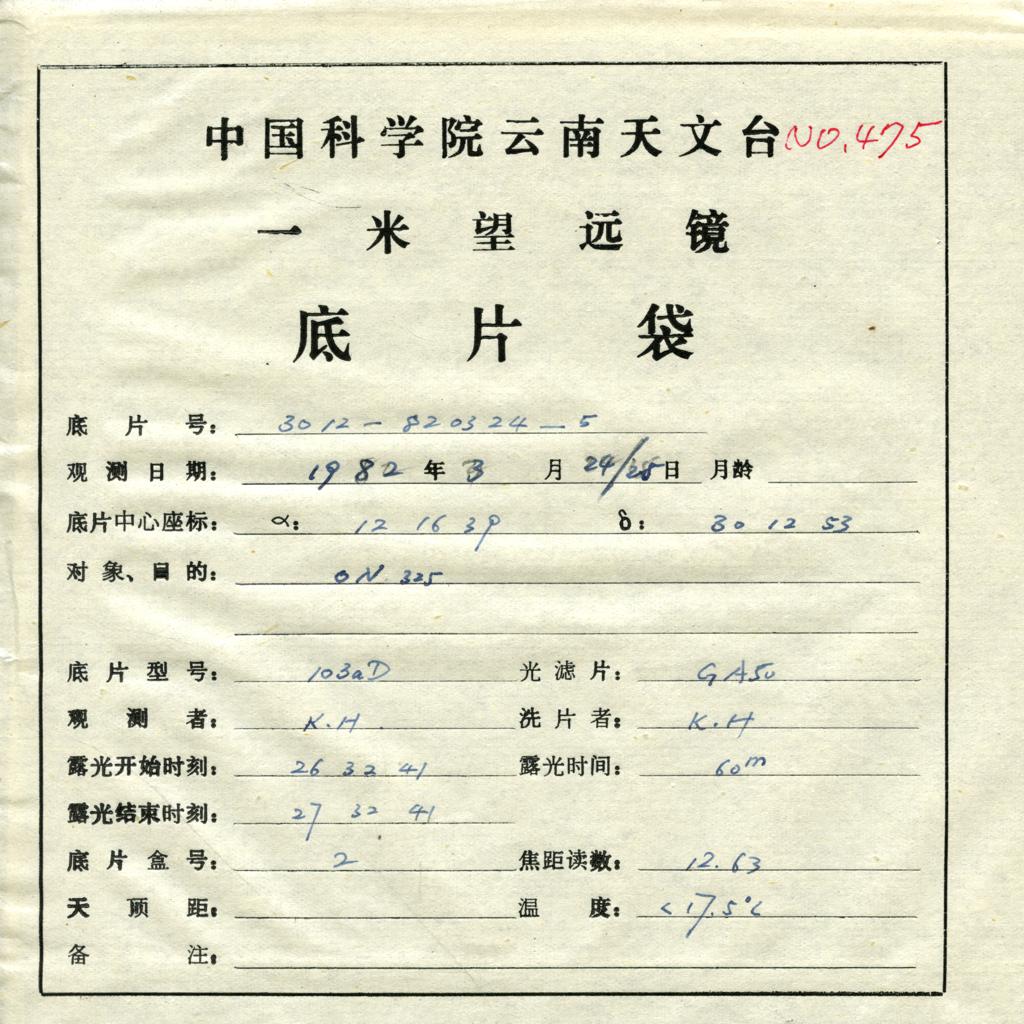 中国科学院云南天文台 NO.475
一米望远镜
底片袋
底片号: 3012-820324-5
观测日期: 1982年3月24/25日 月龄
底片中心座标: α: 12 16 39 δ: 30 12 53
对象、目的: ON 325
底片型号: 103aD 光滤片: GA50
观测者: K.H. 洗片者: K.H
露光开始时刻: 26 32 41 露光时间: 60m
露光结束时刻: 27 32 41
底片盒号: 2 焦距读数: 12.63
天顶距: 温度: <17.5°C
备注: